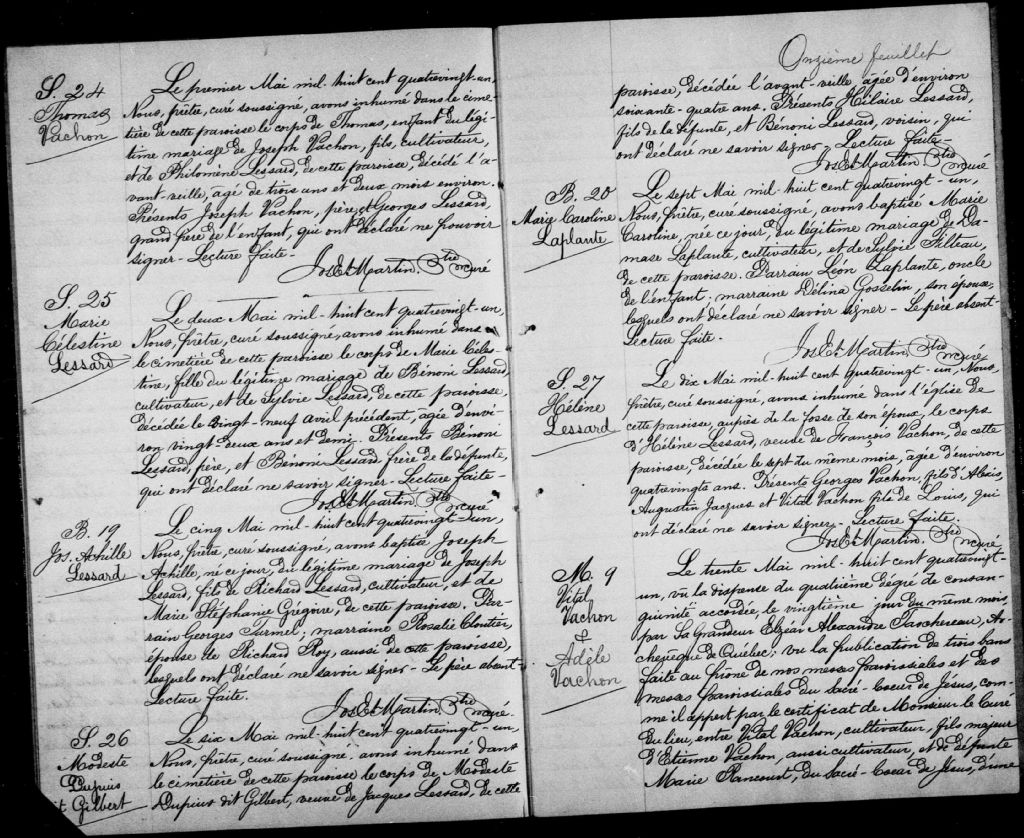 S. 24
Thomas
Vachon
Le premier Mai mil-huit cent quatrevingt-un,
Nous, prêtre, curé soussigné, avons inhumé dans le cime-
tière de cette paroisse le corps de Thomas, enfant du légi-
time mariage de Joseph Vachon, fils, cultivateur,
et de Philomène Lessard, de cette paroisse, décédé l'a-
vant-veille, agé de trois ans et deux mois environ.
Présents Joseph Vachon, père, et Georges Lessard,
grand père de l'enfant, qui ont déclaré ne pouvoir
signer - Lecture faite -
Jos Et Martin, Ptre curé
S. 25
Marie
Célestine
Lessard
Le deux Mai mil-huit cent quatrevingt-un,
Nous, prêtre, curé soussigné, avons inhumé dans
le cimetière de cette paroisse le corps de Marie Céles-
tine, fille du légitime mariage de Bénoni Lessard,
cultivateur, et de Sylvie Lessard, de cette paroisse,
décédée le vingt-neuf avril précédent, agée d'envi-
ron vingt deux ans et demi. Présents Bénoni
Lessard, père, et Bénoni Lessard, frère de la défunte,
qui ont déclaré ne savoir signer - Lecture faite -
Jos Et Martin Ptre curé
B. 19
Jos. Achille
Lessard
Le cinq Mai mil-huit cent quatrevingt-un,
Nous, prêtre, curé soussigné, avons baptisé Joseph
Achille, né ce jour, du légitime mariage de Joseph
Lessard, fils de Richard Lessard, cultivateur, et de
Marie Stéphanie Grégoire, de cette paroisse, Par-
rain Georges Turmel; marraine Rosalie Cloutier,
épouse de Richard Roy, aussi de cette paroisse,
lesquels ont déclaré ne savoir signer - Le père absent -
Lecture faite.
Jos Et Martin, Ptre curé.
S. 26
Modeste
Dupuis
it Gilbert
Le six Mai mil-huit cent quatrevingt-un,
Nous, prêtre, curé soussigné avons inhumé dans
le cimetière de cette paroisse le corps de Modeste
Dupuis dit Gilbert, veuve de Jacques Lessard, de cette
Onzième feuillet
paroisse, décédée l'avant-veille agée d'environ
soixante-quatre ans. Présents Hilaire Lessard,
fils de la défunte, et Bénoni Lessard, voisin, qui
ont déclaré ne savoir signer, Lecture faite -
Jos Et Martin Ptre curé
B. 20
Marie Caroline
Laplante
Le sept Mai mil-huit cent quatrevingt-un,
Nous, prêtre, curé soussigné, avons baptisé Marie
Caroline, née ce jour, du légitime mariage de Da-
mase Laplante, cultivateur, et de Sylvie Filteau,
de cette paroisse. Parrain Léon Laplante, oncle
de l'enfant; marraine Délina Gosselin, son épouse,
lesquels ont déclaré ne savoir signer - Le père absent -
Lecture faite.
Jos Et Martin, Ptre curé
S. 27
Hélène
Lessard
Le dix Mai mil-huit cent quatrevingt-un, Nous,
prêtre, curé soussigné, avons inhumé dans l'église de
cette paroisse, auprès de la fosse de son époux, le corps
d'Hélène Lessard, veuve de François Vachon, de cette
paroisse, décédée le sept du même mois, agée d'environ
quatrevingts ans. Présents Georges Vachon, fils d'Alexis,
Augustin Jacques et Vital Vachon fils de Louis, qui
ont déclaré ne savoir signer - Lecture faite.
Jos Et Martin. Ptre curé
M. 9
Vital
Vachon
&
Adèle
Vachon
Le trente Mai mil-huit cent quatrevingt-
un, vû la dispense du quatrième dégré de consan-
guinité accordée le vingtième jour du même mois
par Sa Grandeur Elzéar Alexandre Taschereau, Ar-
chevêque de Québec; vu la publication de trois bans
faite au prône de nos messes paroissiales et des
messes paroissiales du Sacré-Coeur de Jésus, com-
me il appert par le certificat de Monsieur le Curé
du lieu, entre Vital Vachon, cultivateur, fils majeur
d'Etienne Vachon, aussi cultivateur, et de défunte
Marie Rancourt, du Sacré-Coeur de Jésus, d'une